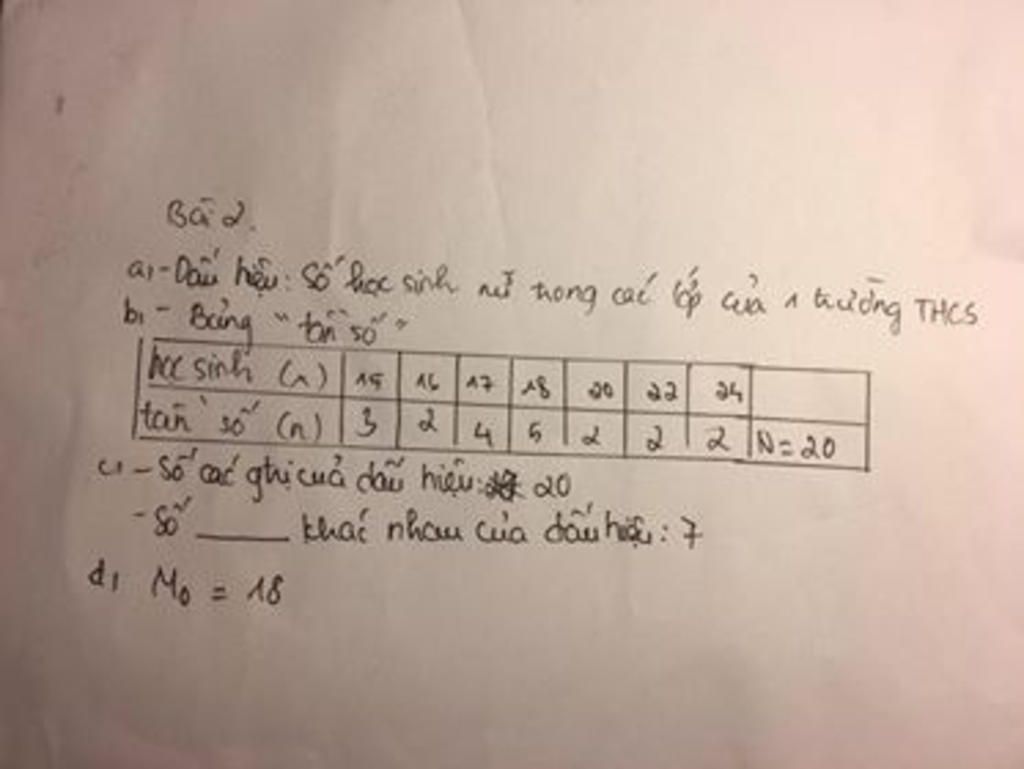 Bài 2.
a, - Dấu hiệu: Số học sinh nữ trong các lớp của 1 trường THCS
b, - Bảng "tần số"
học sinh (x) 15 16 17 18 20 22 24
tần số (n) 3 2 4 5 2 2 2 N = 20
c, - Số các gtrị của dấu hiệu: 20
- Số ____ khác nhau của dấu hiệu: 7
d, M₀ = 18